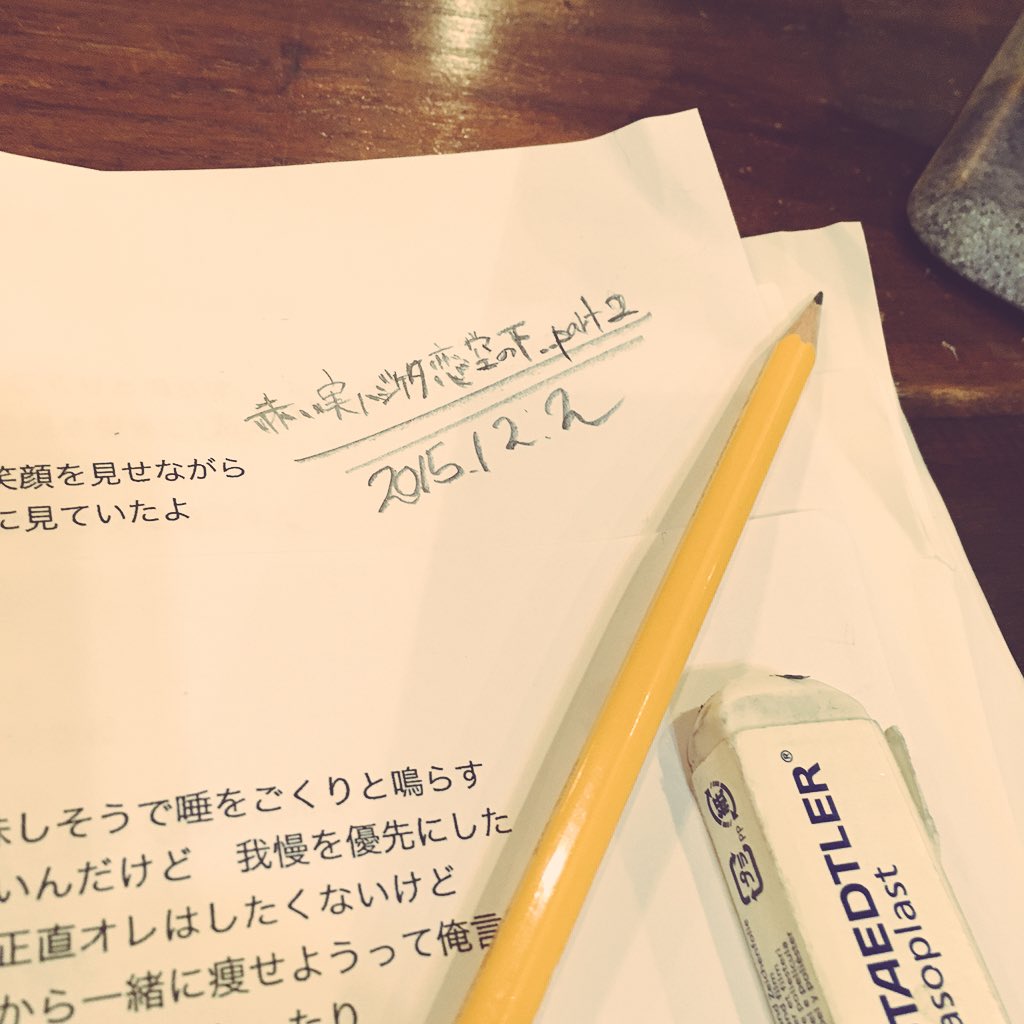 赤い実ハジケタ恋空の下_part2
2015.12.2
笑顔を見せながら
に見ていたよ
味しそうで唾をごくりと鳴らす
いんだけど　我慢を優先にした
正直オレはしたくないけど
から一緒に痩せようって俺言
たり
STAEDTLER®
rasoplast
紙
プラ
PP